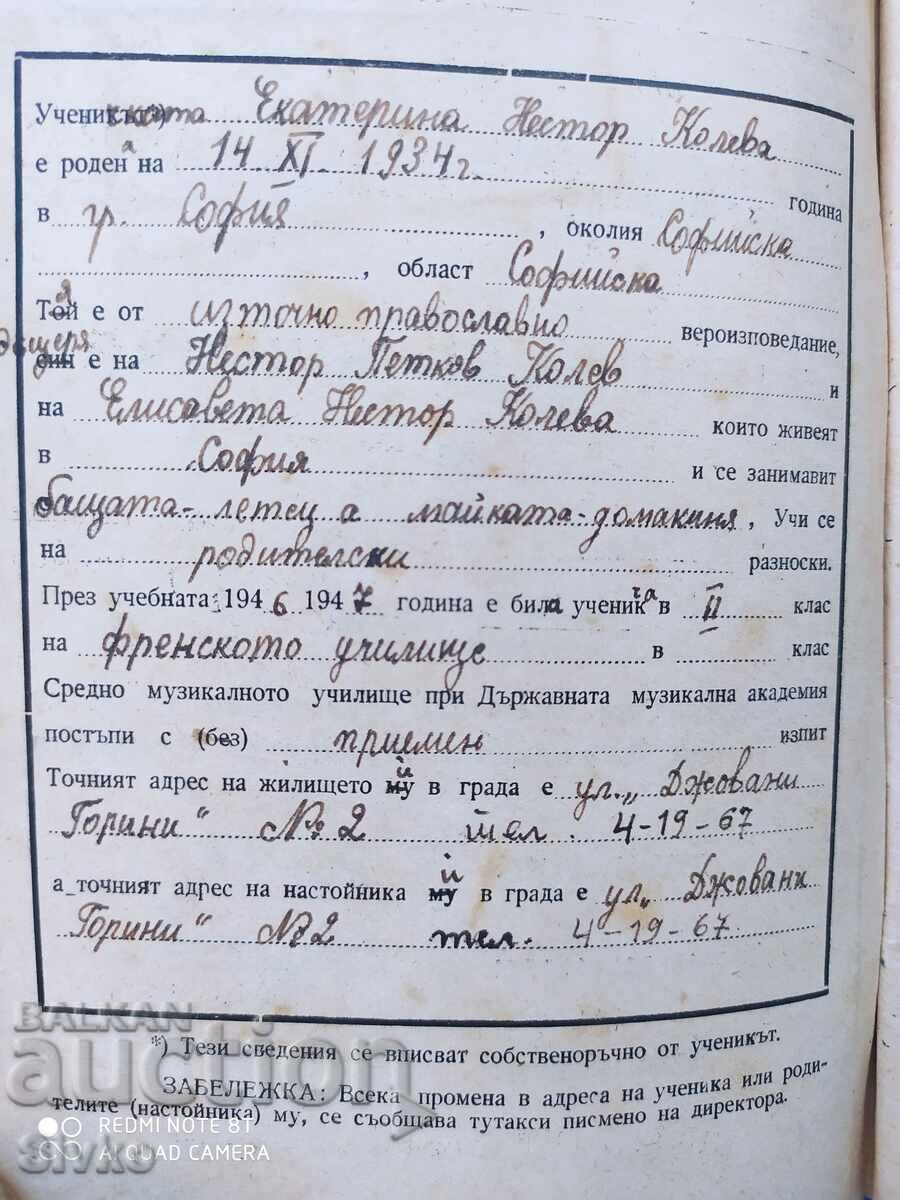 Ученикът*) ката Екатерина Нестор Колева
е роден а на 14 XI 1934 г. година
в гр. София, околия Софийска
, област Софийска
Той я е от източно православно вероизповедание,
син дъщеря е на Нестор Петков Колев и
на Елисавета Нестор Колева които живеят
в София и се занимавит
бащата - летец а майката - домакиня, Учи се
на родителски разноски.
През учебната 1946 1947 година е била ученичка в II клас
на френското училище в клас
Средно музикалното училище при Държавната музикална академия
постъпи с (без) приемен изпит
Точният адрес на жилището му ѝ в града е ул. „Джовани
Горини“ № 2 тел. 4-19-67
а точният адрес на настойника му ѝ в града е ул. „Джовани
Горини“ № 2 тел. 4-19-67
*) Тези сведения се вписват собственоръчно от ученикът.
ЗАБЕЛЕЖКА: Всека промена в адреса на ученика или роди-
телите (настойника) му, се съобщава тутакси писмено на директора.
BALKAN
auction
REDMI NOTE 8T
AI QUAD CAMERA
Sivko